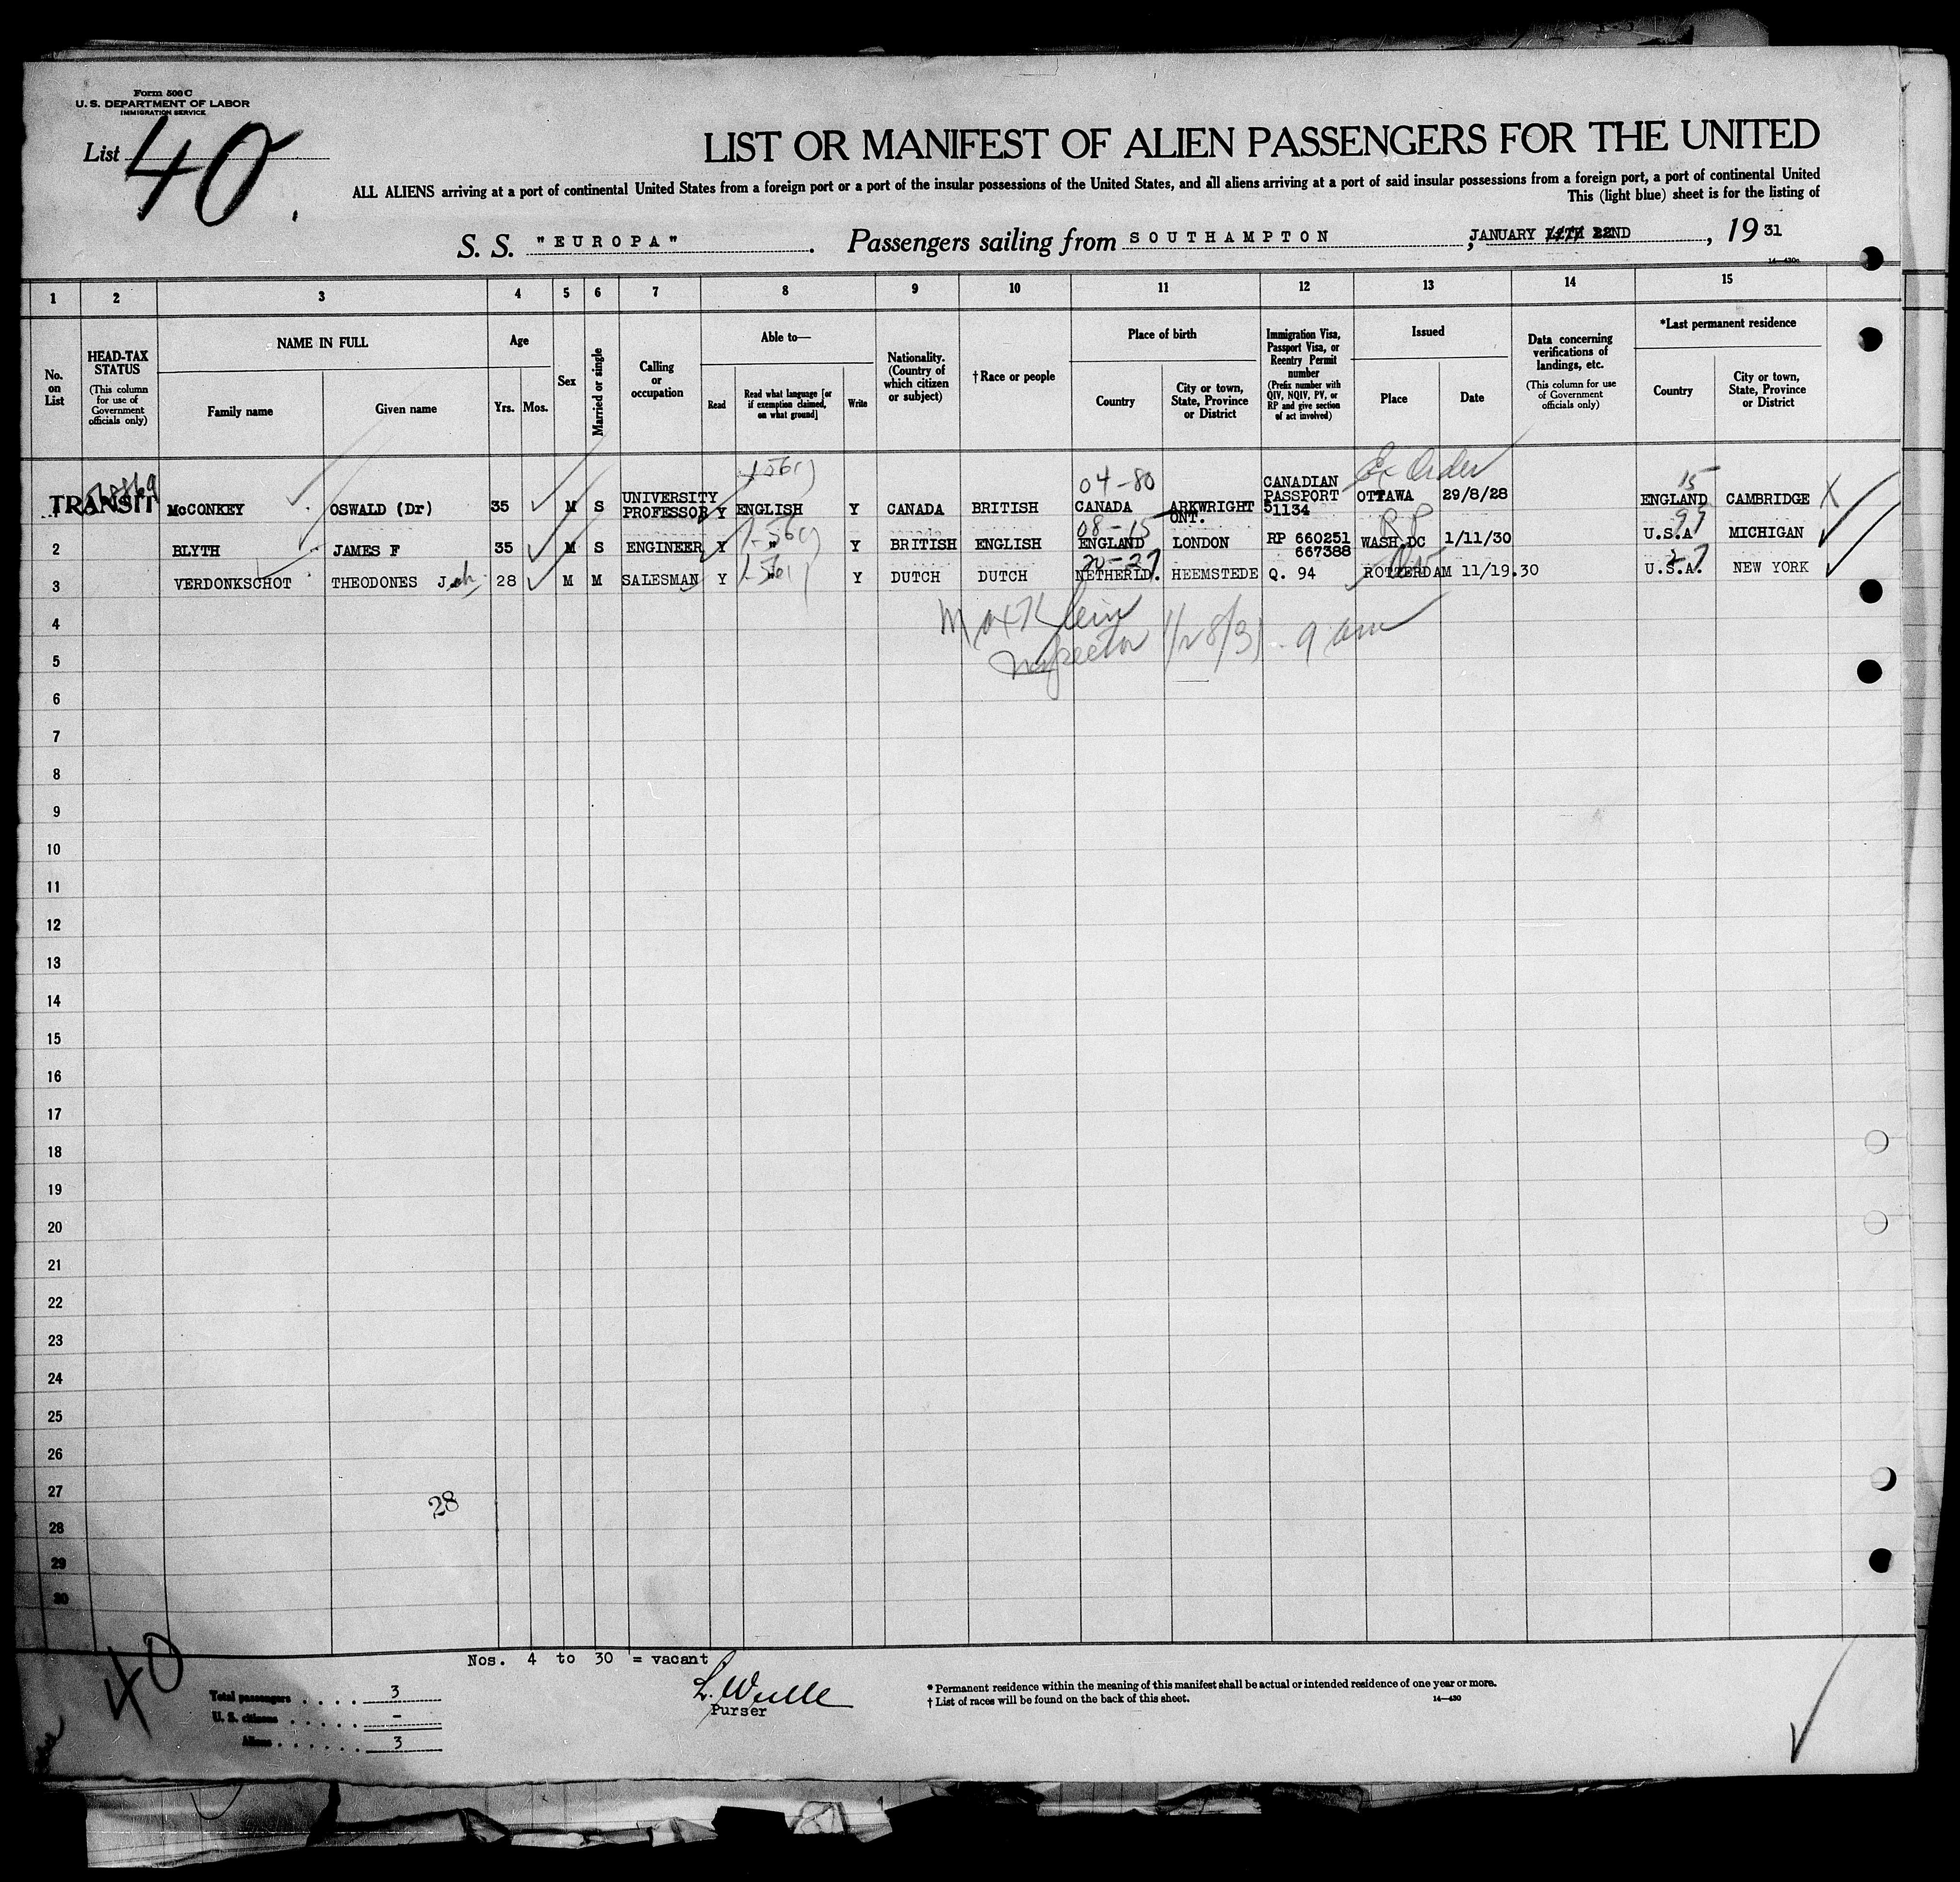 Form 500 C
U. S. DEPARTMENT OF LABOR
IMMIGRATION SERVICE
List 40
LIST OR MANIFEST OF ALIEN PASSENGERS FOR THE UNITED
ALL ALIENS arriving at a port of continental United States from a foreign port or a port of the insular possessions of the United States, and all aliens arriving at a port of said insular possessions from a foreign port, a port of continental United
This (light blue) sheet is for the listing of
S. S. "EUROPA". Passengers sailing from SOUTHAMPTON, JANUARY 22ND, 19 31
1 2 3 4 5 6 7 8 9 10 11 12 13 14 15
No. on List
HEAD-TAX STATUS (This column for use of Government officials only)
NAME IN FULL
Family name
Given name
Age
Yrs. Mos.
Sex
Married or single
Calling or occupation
Able to—
Read
Read what language [or if exemption claimed, on what ground]
Write
Nationality. (Country of which citizen or subject)
†Race or people
Place of birth
Country
City or town, State, Province or District
Immigration Visa, Passport Visa, or Reentry Permit number (Prefix number with QIV, NQIV, PV, or RP and give section of act involved)
Issued
Place
Date
Data concerning verifications of landings, etc. (This column for use of Government officials only)
*Last permanent residence
Country
City or town, State, Province or District
04-80 Ex Order 15
1 TRANSIT McCONKEY OSWALD (Dr) 35 M S UNIVERSITY PROFESSOR Y ENGLISH Y CANADA BRITISH CANADA ARKWRIGHT ONT. CANADIAN PASSPORT 51134 OTTAWA 29/8/28 ENGLAND CAMBRIDGE X
08-15 RP
2 BLYTH JAMES F 35 M S ENGINEER Y " Y BRITISH ENGLISH ENGLAND LONDON RP 660251 667388 WASH.DC 1/11/30 U.S.A. MICHIGAN
20-27 27
3 VERDONKSCHOT THEODONES J 28 M M SALESMAN Y " Y DUTCH DUTCH NETHERLD. HEEMSTEDE Q. 94 ROTTERDAM 11/19.30 U.S.A. NEW YORK
4
Max Klein
5
Inspector 1/28/31 - 9 am
6
7
8
9
10
11
12
13
14
15
16
17
18
19
20
21
22
23
24
25
26
27
28
28
29
30
Nos. 4 to 30 = vacant
40
Total passengers . . . . 3
U. S. citizens . . . . . –
Aliens . . . . . . 3
Purser
* Permanent residence within the meaning of this manifest shall be actual or intended residence of one year or more.
† List of races will be found on the back of this sheet.
14—430